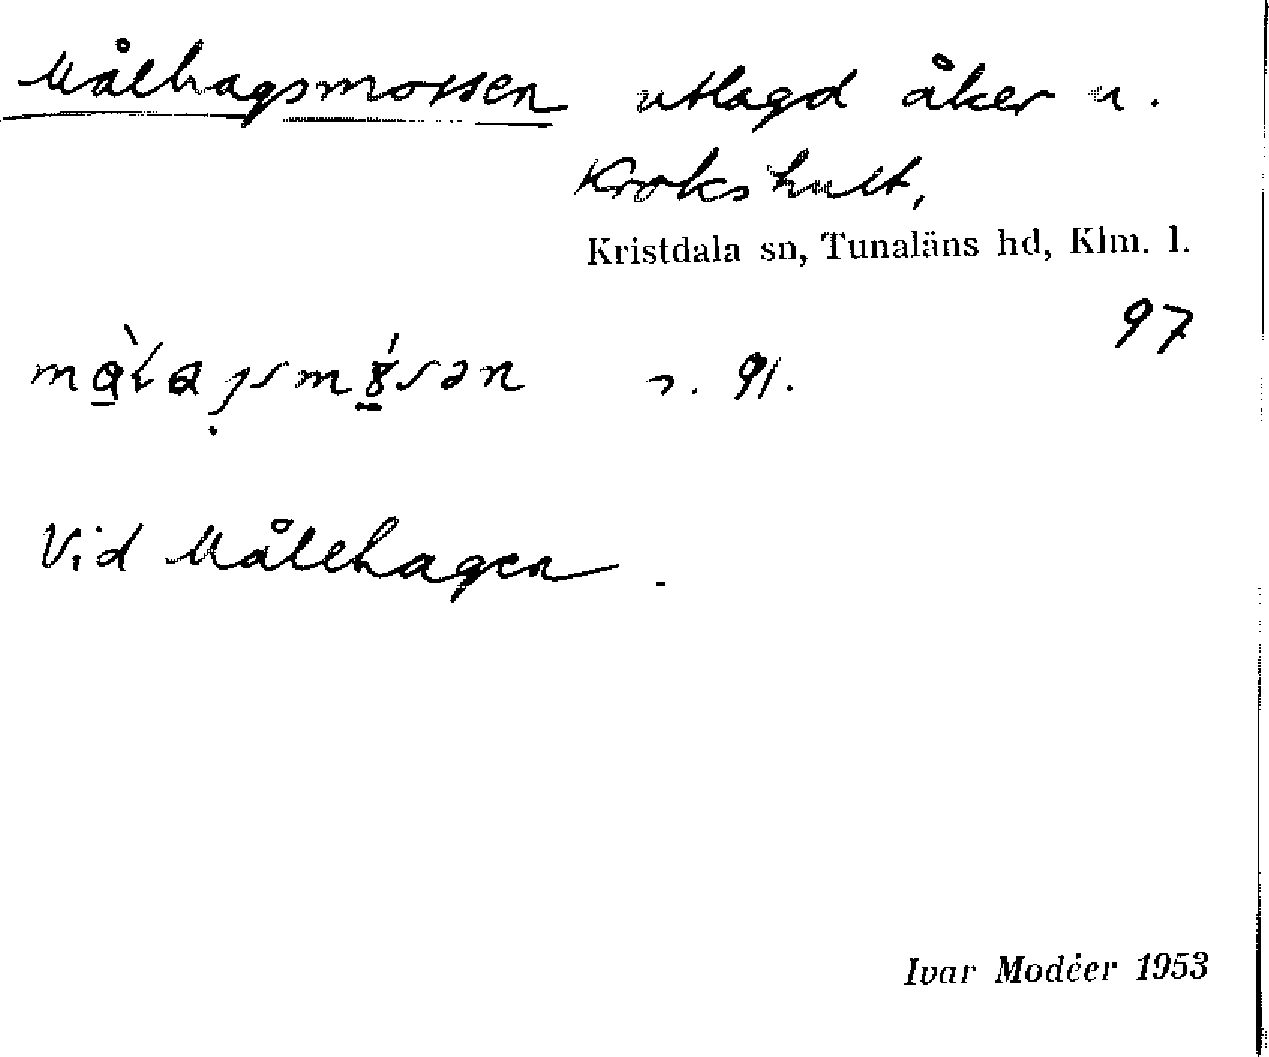 Målhagsmossen utlagd åker u.
Krokshult,
Kristdala sn, Tunaläns hd, Klm. l.
97
s. 91.
Vid Målehagen.
Ivar Modéer 1953